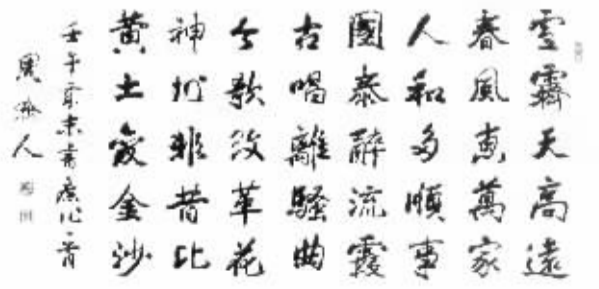 雪霽天高遠
春風惠萬家
人和多順事
國泰醉流霞
古唱離騷曲
今歌改革花
神州非昔比
黄土變金沙
壬午末書
人